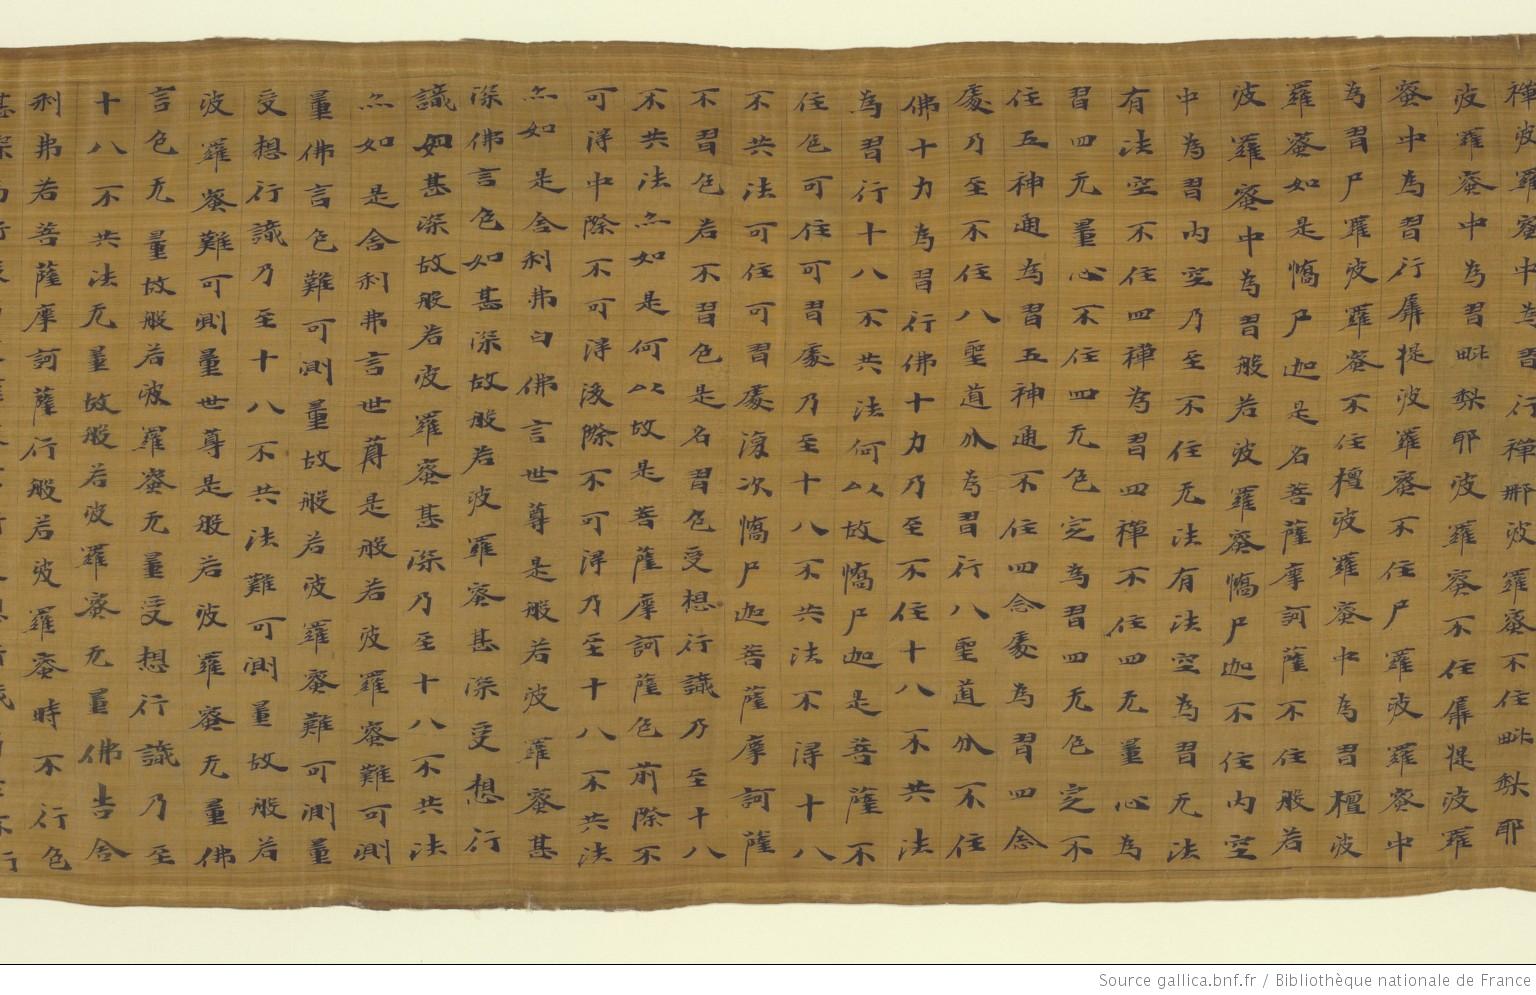 禪波羅蜜中為習行禪那波羅蜜不住毗梨耶
波羅蜜中為習毗梨耶波羅蜜不住羼提波羅
蜜中為習行羼提波羅蜜不住尸羅波羅蜜中
為習尸羅波羅蜜不住檀波羅蜜中為習檀波
羅蜜如是憍尸迦是名菩薩摩訶薩不住般若
波羅蜜中為習般若波羅蜜憍尸迦不住内空
中為習内空乃至不住无法有法空為習无法
有法空不住四禪為習四禪不住四无量心為
習四无量心不住四无色定為習四无色定不
住五神通為習五神通不住四念處為習四念
處乃至不住八聖道分為習行八聖道分不住
佛十力為習行佛十力乃至不住十八不共法
為習行十八不共法何以故憍尸迦是菩薩不
住色可住可習處乃至十八不共法不得十八
不共法可住可習處復次憍尸迦菩薩摩訶薩
不習色若不習色是名習色受想行識乃至十八
不共法亦如是何以故是菩薩摩訶薩色前際不
可得中際不可得後際不可得乃至十八不共法
亦如是舍利弗白佛言世尊是般若波羅蜜甚
深佛言色如甚深故般若波羅蜜甚深受想行
識如甚深故般若波羅蜜甚深乃至十八不共法
亦如是舍利弗言世尊是般若波羅蜜難可測
量佛言色難可測量故般若波羅蜜難可測量
受想行識乃至十八不共法難可測量故般若
波羅蜜難可測量世尊是般若波羅蜜无量佛
言色无量故般若波羅蜜无量受想行識乃至
十八不共法无量故般若波羅蜜无量佛告舍
利弗若菩薩摩訶薩行般若波羅蜜時不行色
Source gallica.bnf.fr / Bibliothèque nationale de France